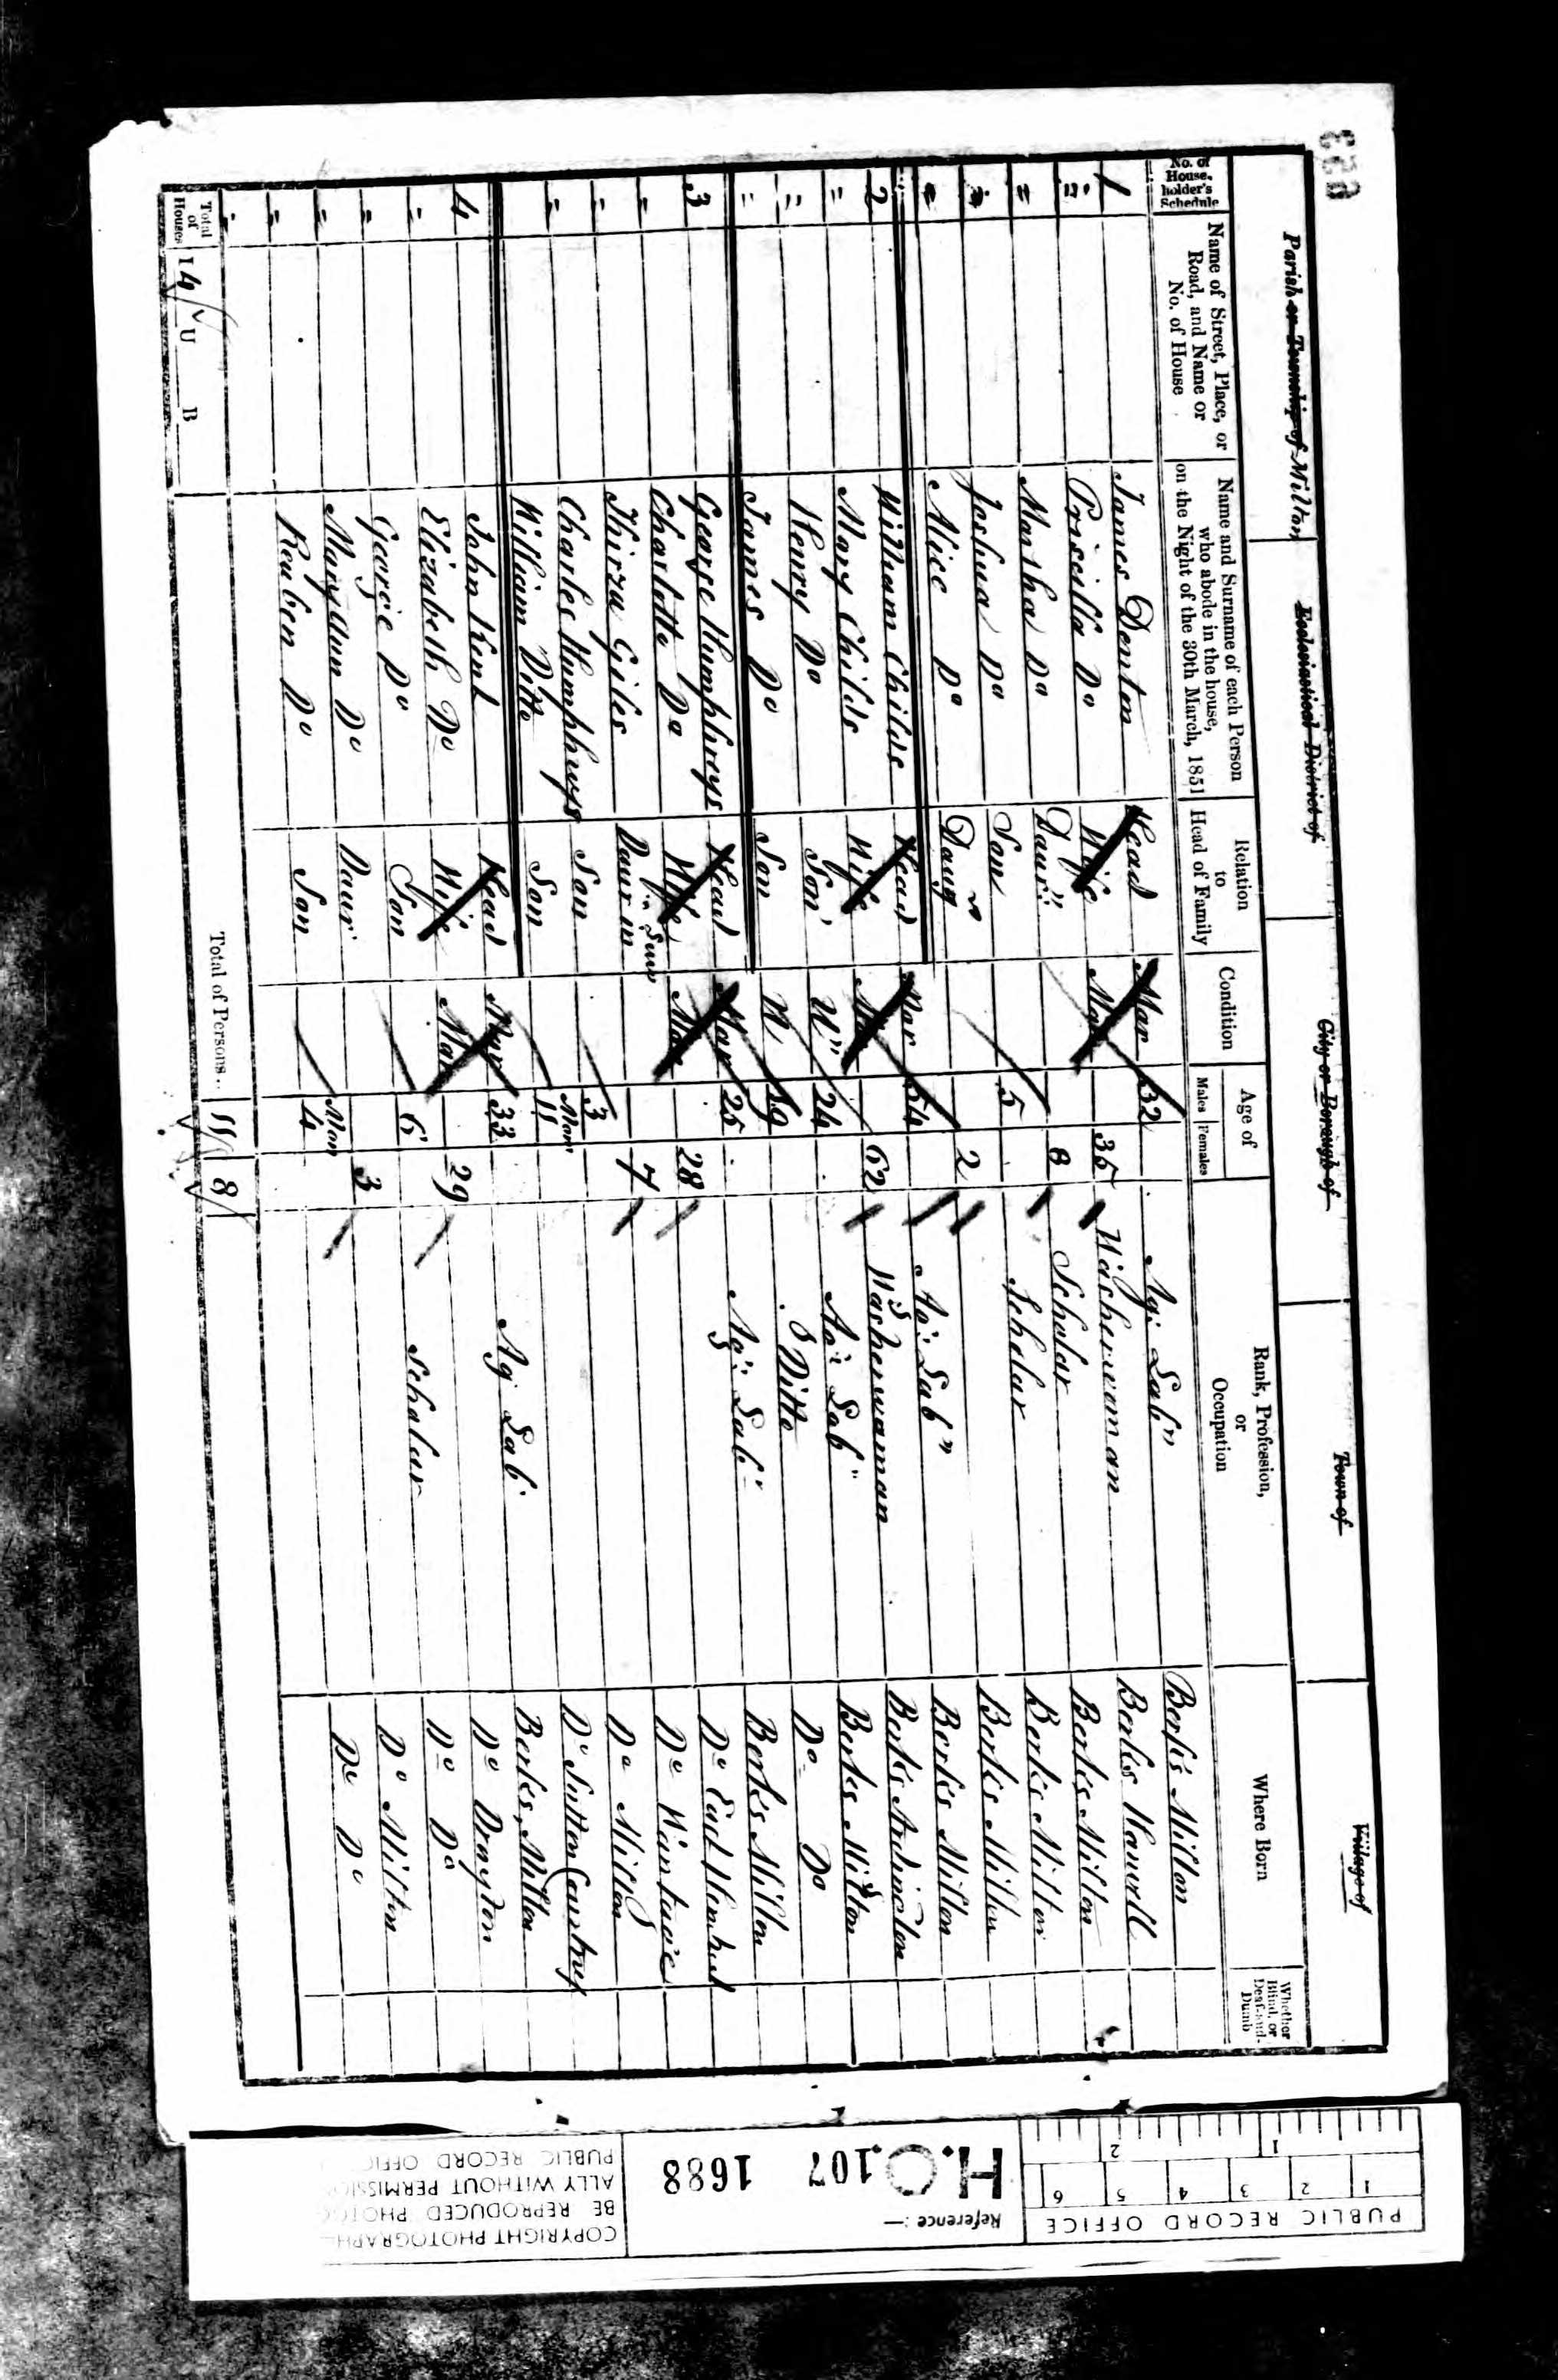 633
Parish or Township of Milton Ecclesiastical District of City or Borough of Town of Village of
No. of House-holder's Schedule Name of Street, Place, or Road, and Name or No. of House Name and Surname of each Person who abode in the house, on the Night of the 30th March, 1851 Relation to Head of Family Condition Age of Males Females Rank, Profession, or Occupation Where Born Whether Blind, or Deaf-and-Dumb
1 James Denton Head Mar 32 Ag: Lab" Berks Milton
" Priscilla Do Wife Mar 35 Washerwoman Berks
" Martha Do Daur" 8 Scholar Berks Milton
" Joshua Do Son 5 Scholar Berks Milton
" Alice Do Daug 2 Berks Milton
2 William Childs Head Mar 54 Ag: Lab" Berks Milton
" Mary Childs Wife 62 Washerwoman Berks
" Henry Do Son U" 24 Ag: Lab" Berks Milton
" James Do Son U 19 Ditto Do Do
3 George Humphreys Head Mar 25 Ag: Lab" Berks Milton
" Charlotte Do Wife Mar 28 Do East
" Thirza Giles Daur in Law 7 Do Wantage
" Charles Humphreys Son 3 Do Milton
" William Ditto Son 11 Mon Do Sutton Courtney
4 John Kent Head Mar 33 Ag Lab Berks, Milton
" Elizabeth Do Wife Mar 29 Do Drayton
" George Do Son 6 Scholar Do Do
" Maryann Do Daur 3 Do Milton
" Reuben Do Son 4 Mon Do Do
Total of Houses I 4 U B Total of Persons.. 11 8
PUBLIC RECORD OFFICE
1 2 3 4 5 6
1 2
Reference :—
H.O. 107 1688
COPYRIGHT PHOTOGRAPH
BE REPRODUCED PHOTOG
ALLY WITHOUT PERMISSION
PUBLIC RECORD OFFIC